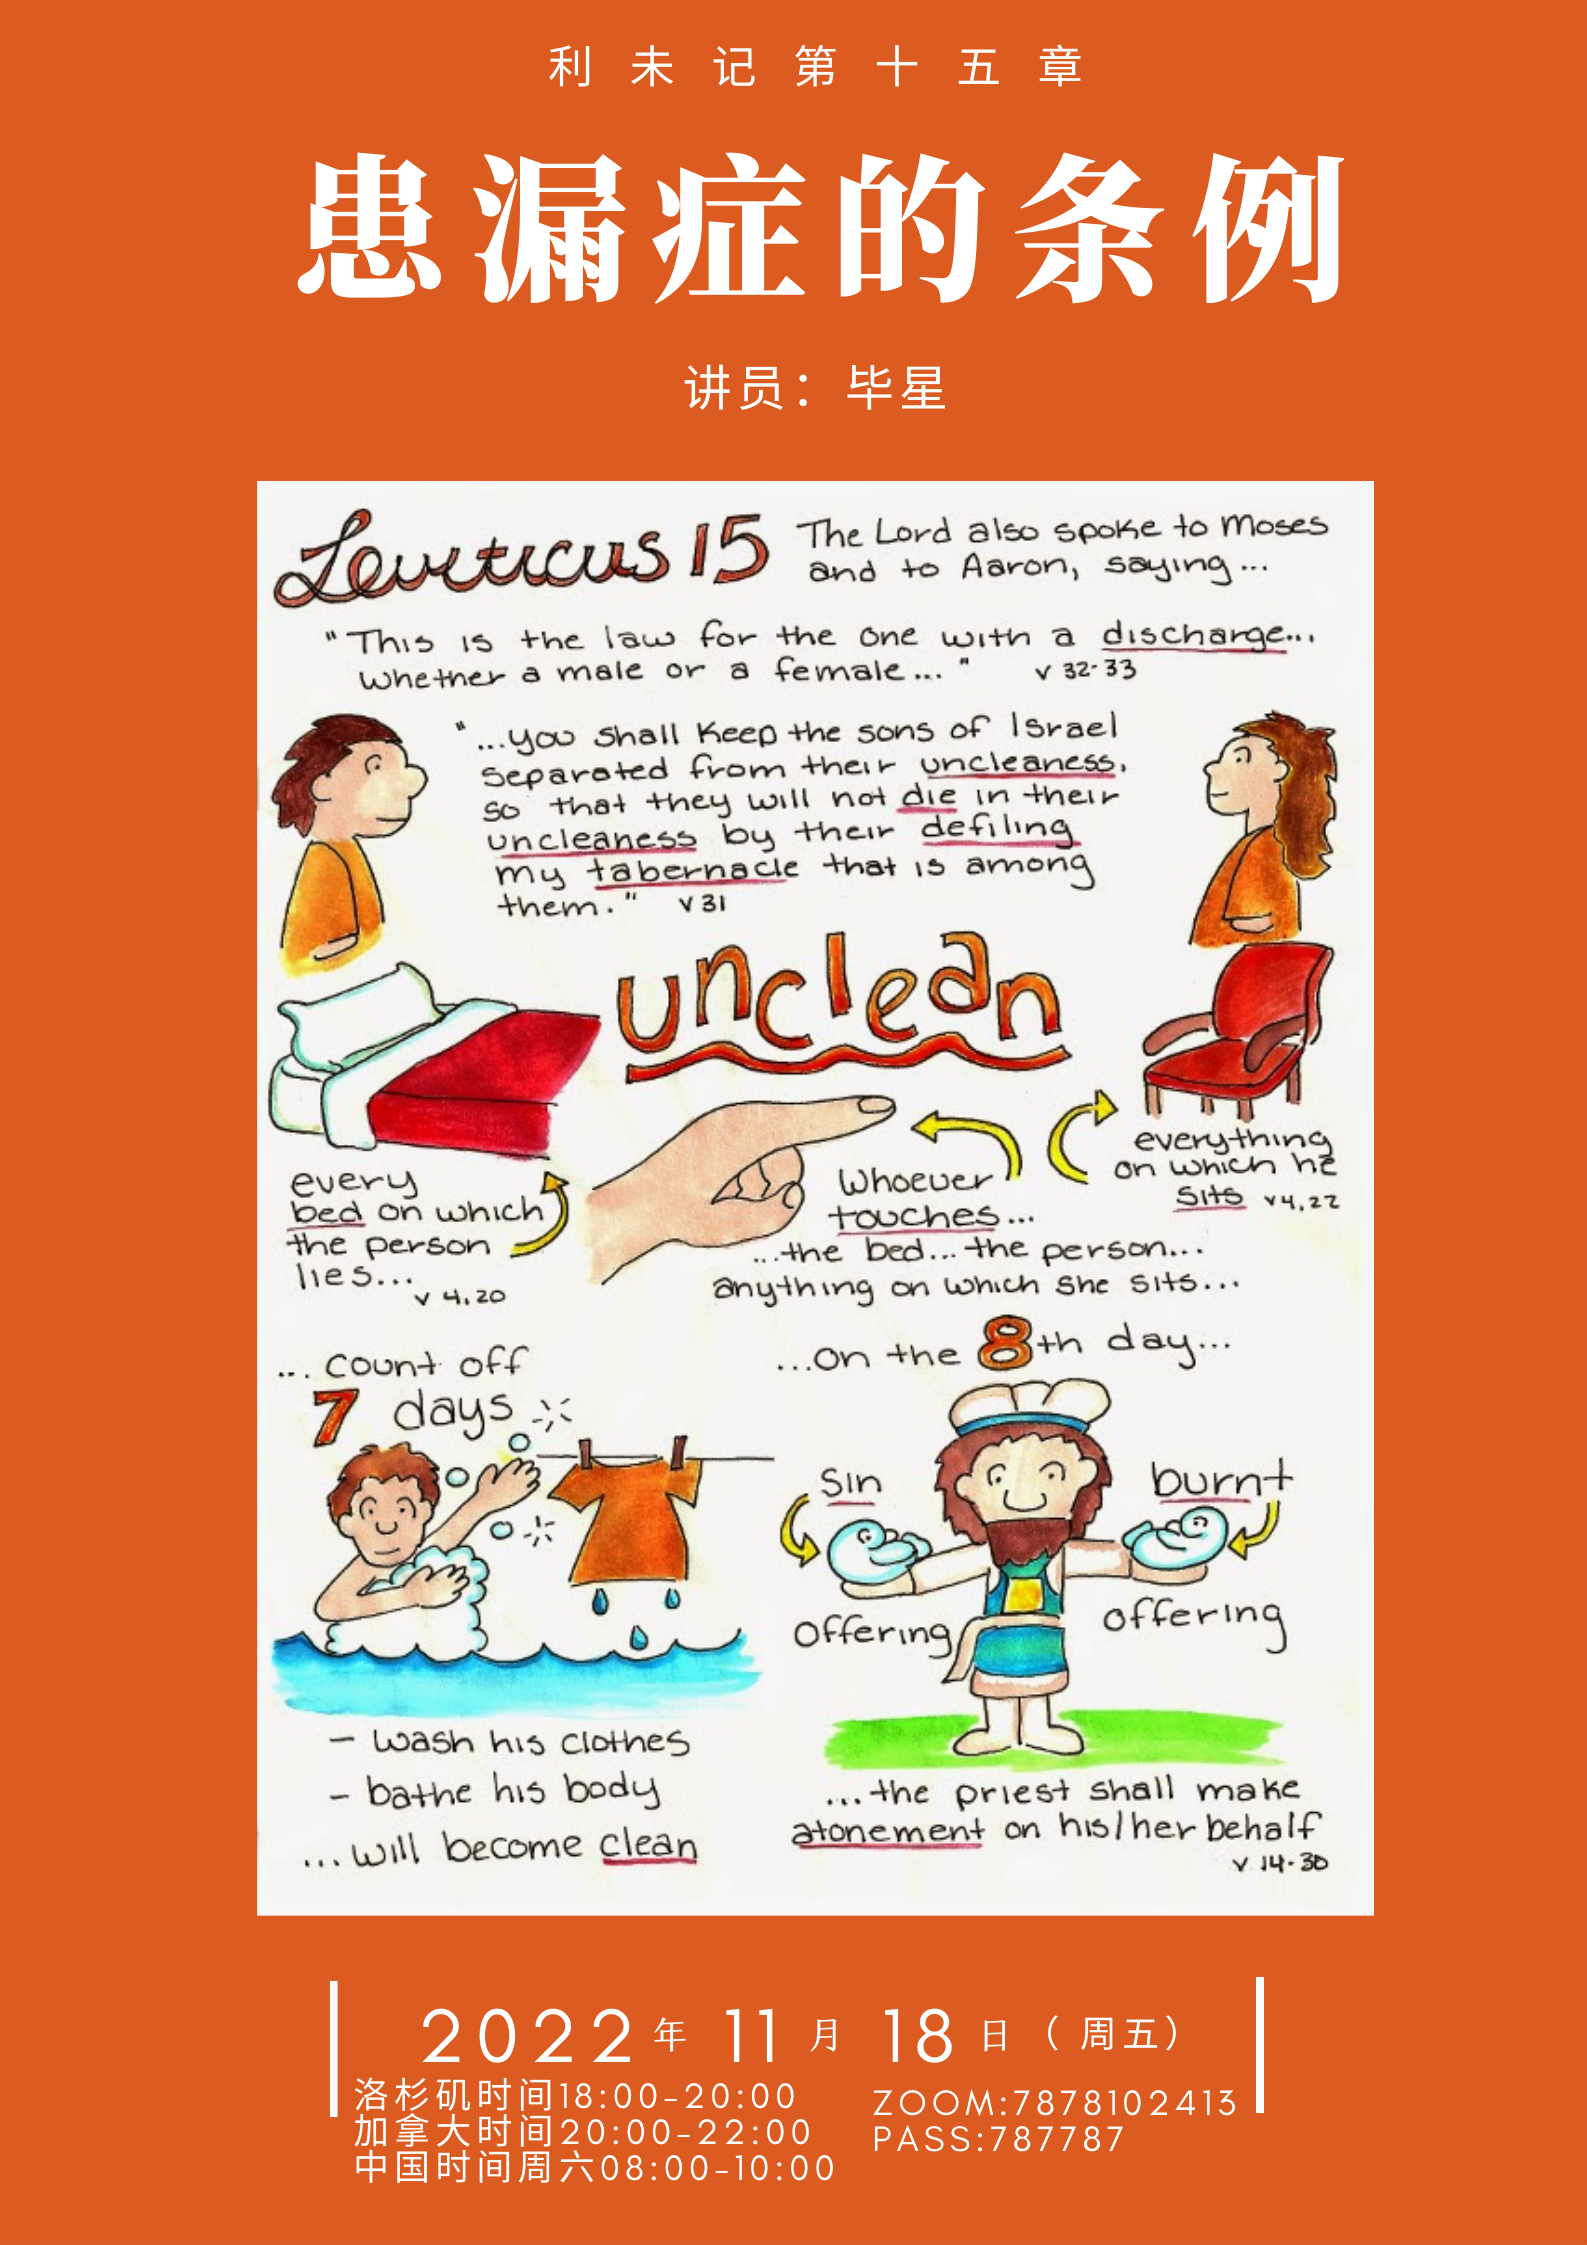 利未记第十五章
患漏症的条例
讲员：毕星
Leviticus 15
The Lord also spoke to Moses
and to Aaron, saying...
"This is the law for the one with a discharge...
whether a male or a female..." v 32-33
"...you shall keep the sons of Israel
separated from their uncleaness,
so that they will not die in their
uncleaness by their defiling
my tabernacle that is among
them." v 31
unclean
every
bed on which
the person
lies...
v 4,20
whoever
touches...
...the bed...the person...
anything on which she sits...
everything
on which he
sits v4,22
... count off
7 days
- wash his clothes
- bathe his body
...will become clean
...on the 8th day...
sin
offering
burnt
offering
...the priest shall make
atonement on his/her behalf
v 14-30
2022年 11月 18日（周五）
洛杉矶时间18:00-20:00
加拿大时间20:00-22:00
中国时间周六08:00-10:00
ZOOM:7878102413
PASS:787787